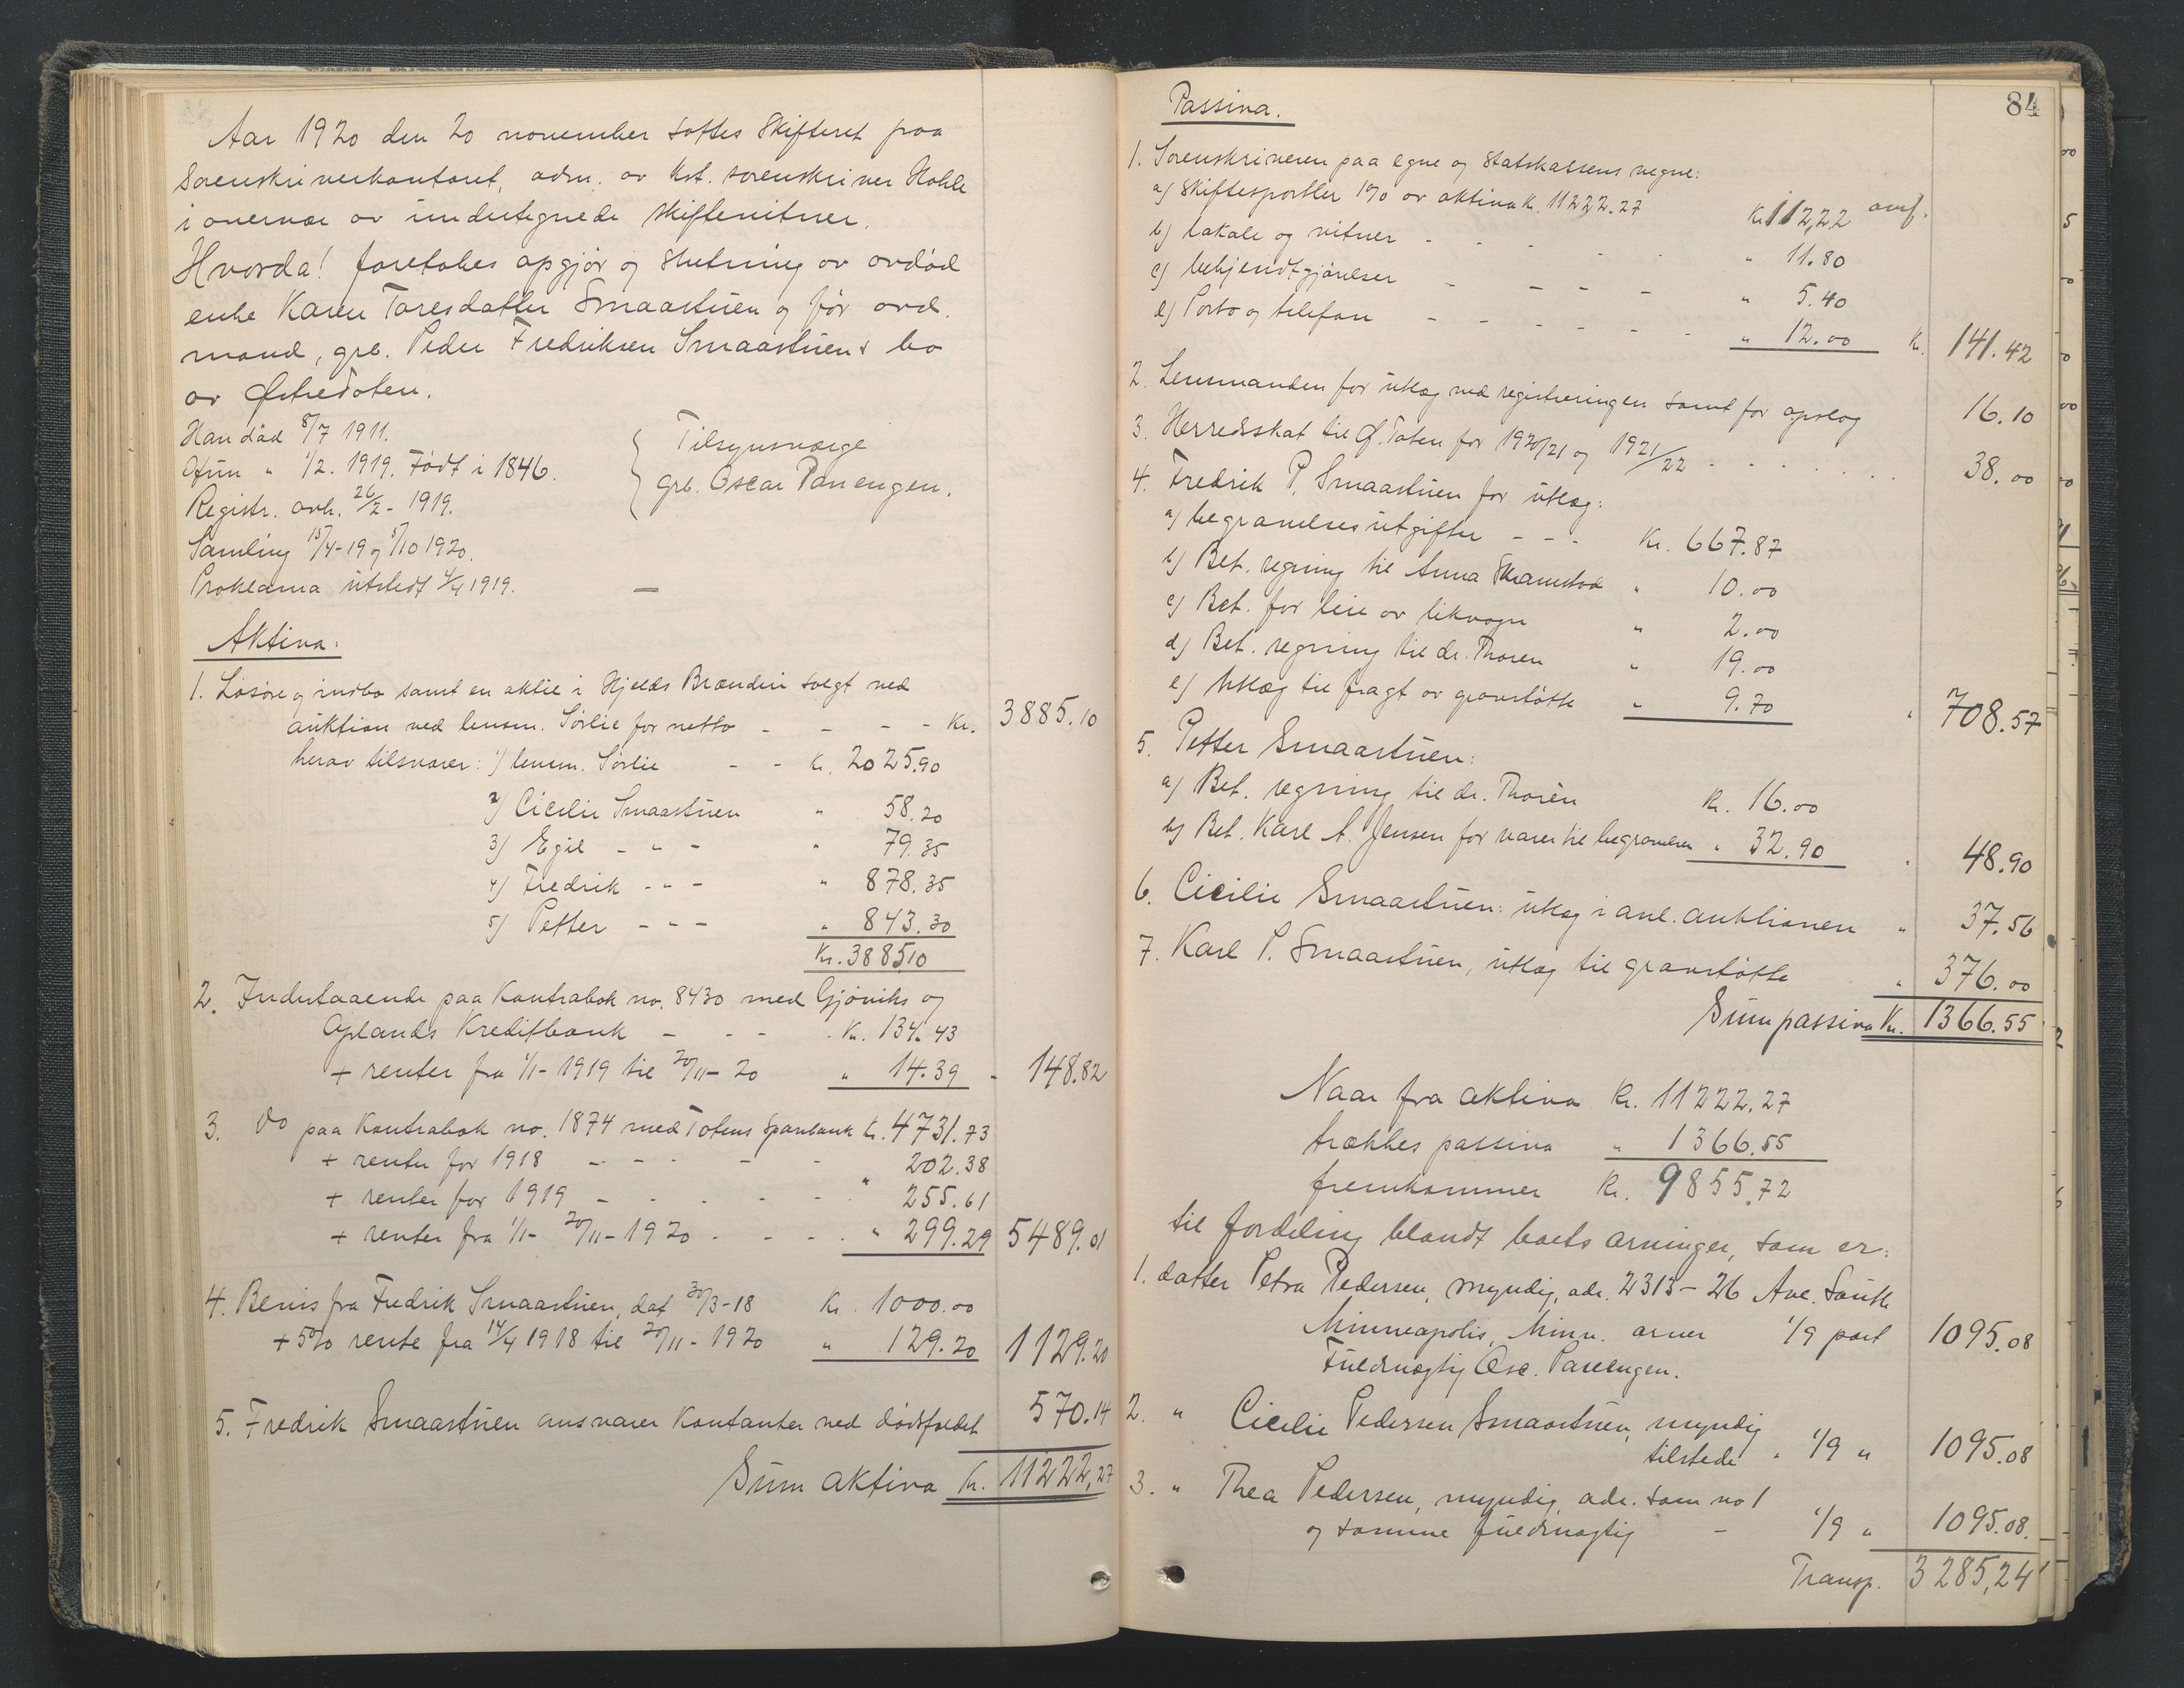 Aar 1920 den 20 november sattes Skifteret paa
Sorenskriverkontoret, adm. av kst. sorenskriver Hohle
i overvær av undertegnede skiftevitner.
Hvorda! foretokes opgjør og slutning av avdød
enke Karen Toresdatter Smaastuen og før avd.
mand, grb. Peder Fredriksen Smaastuens bo
av Østre Toten.
Han død 8/7 1911.
Hun " 1/2. 1919. Født i 1846.
Registr. avh. 26/2 - 1919.
Samling 15/4-19 og 5/10 1920.
Proklama utstedt 4/4 1919. —
Tilsynsværge
grb. Oscar Parengen.
Aktiva:
1. Løsøre og indbo samt en aktie i Hjelds Brænderi solgt ved
auktion ved lensm. Sørlie for netto - - - - Kr. 3885.10
herav tilsvarer: 1) lensm. Sørlie - - Kr. 2025.90
2) Cicilie Smaastuen " 58.20
3) Egil - " - " 79.35
4) Fredrik - " - " 878.35
5) Petter - " - " 843.30
Kr. 388510
2. Indestaaende paa Kontrabok no. 8430 med Gjøviks og
Oplands Kreditbank - - - Kr. 134.43
+ renter fra 1/1 - 1919 til 20/11 - 20 " 14.39 - 148.82
3. Do paa Kontrabok no. 1874 med Totens Sparebank Kr. 4731.73
+ renter for 1918 - - - - - 202.38
+ renter for 1919 - - - - - " 255.61
+ renter fra 1/1 - 20/11 - 1920 - - - - " 299.29 5489.01
4. Bevis fra Fredrik Smaastuen, dat 30/3-18 Kr. 1000.00
+ 5% rente fra 14/4 1918 til 20/11 - 1920 " 129.20 1129.20
5. Fredrik Smaastuen ansvarer Kontanter ved dødsfaldet 570.14
Sum aktiva Kr. 11222,27
84
Passiva.
1. Sorenskriveren paa egne og Statskassens vegne:
a) Skiftesportler 1% av aktiva Kr. 11222.27 Kr. 112,22 avf.
b) lokale og vitner - - - - - " 11.80
c) bekjendtgjørelser - - - - " 5.40
d) Porto og telefon - - - - - - " 12.00 Kr. 141.42
2. Lensmanden for utlæg ved registreringen samt for opslag 16.10
3. Herredsskat til Ø. Toten for 1920/21 og 1921/22 - - - - - - 38.00
4. Fredrik P. Smaastuen for utlæg:
a) begravelsesutgifter - - - Kr. 667.87
b) Bet. regning til Anna Skramstad " 10.00
c) Bet. for leie av likvogn " 2.00
d) Bet. regning til dr. Thoren " 19.00
e) Utlæg til fragt av gravstøtte " 9.70 " 708.57
5. Petter Smaastuen:
a) Bet. regning til dr. Thorèn Kr. 16.00
b) Bet. Karl A. Jensen for varer til begravelsen " 32.90 " 48.90
6. Cicilie Smaastuen: utlæg i anl. auktionen " 37.56
7. Karl P. Smaastuen, utlæg til gravstøtte " 376.00
Sum passiva Kr. 1366.55
Naar fra aktiva Kr. 11222.27
trækkes passiva " 1366.55
fremkommer Kr. 9855.72
til fordeling blandt boets arvinger, som er:
1. datter Petra Pedersen, myndig, adr. 2313 - 26 Ave. South
Minneapolis, Minn. arver 1/9 part 1095.08
Fuldmægtig Osc. Parengen.
2. " Cicilie Pedersen Smaastuen, myndig
tilstede " 1/9 " 1095.08
3. " Thea Pedersen, myndig, adr. som no 1
og samme fuldmægtig - 1/9 " 1095.08.
Transp. 3285,24